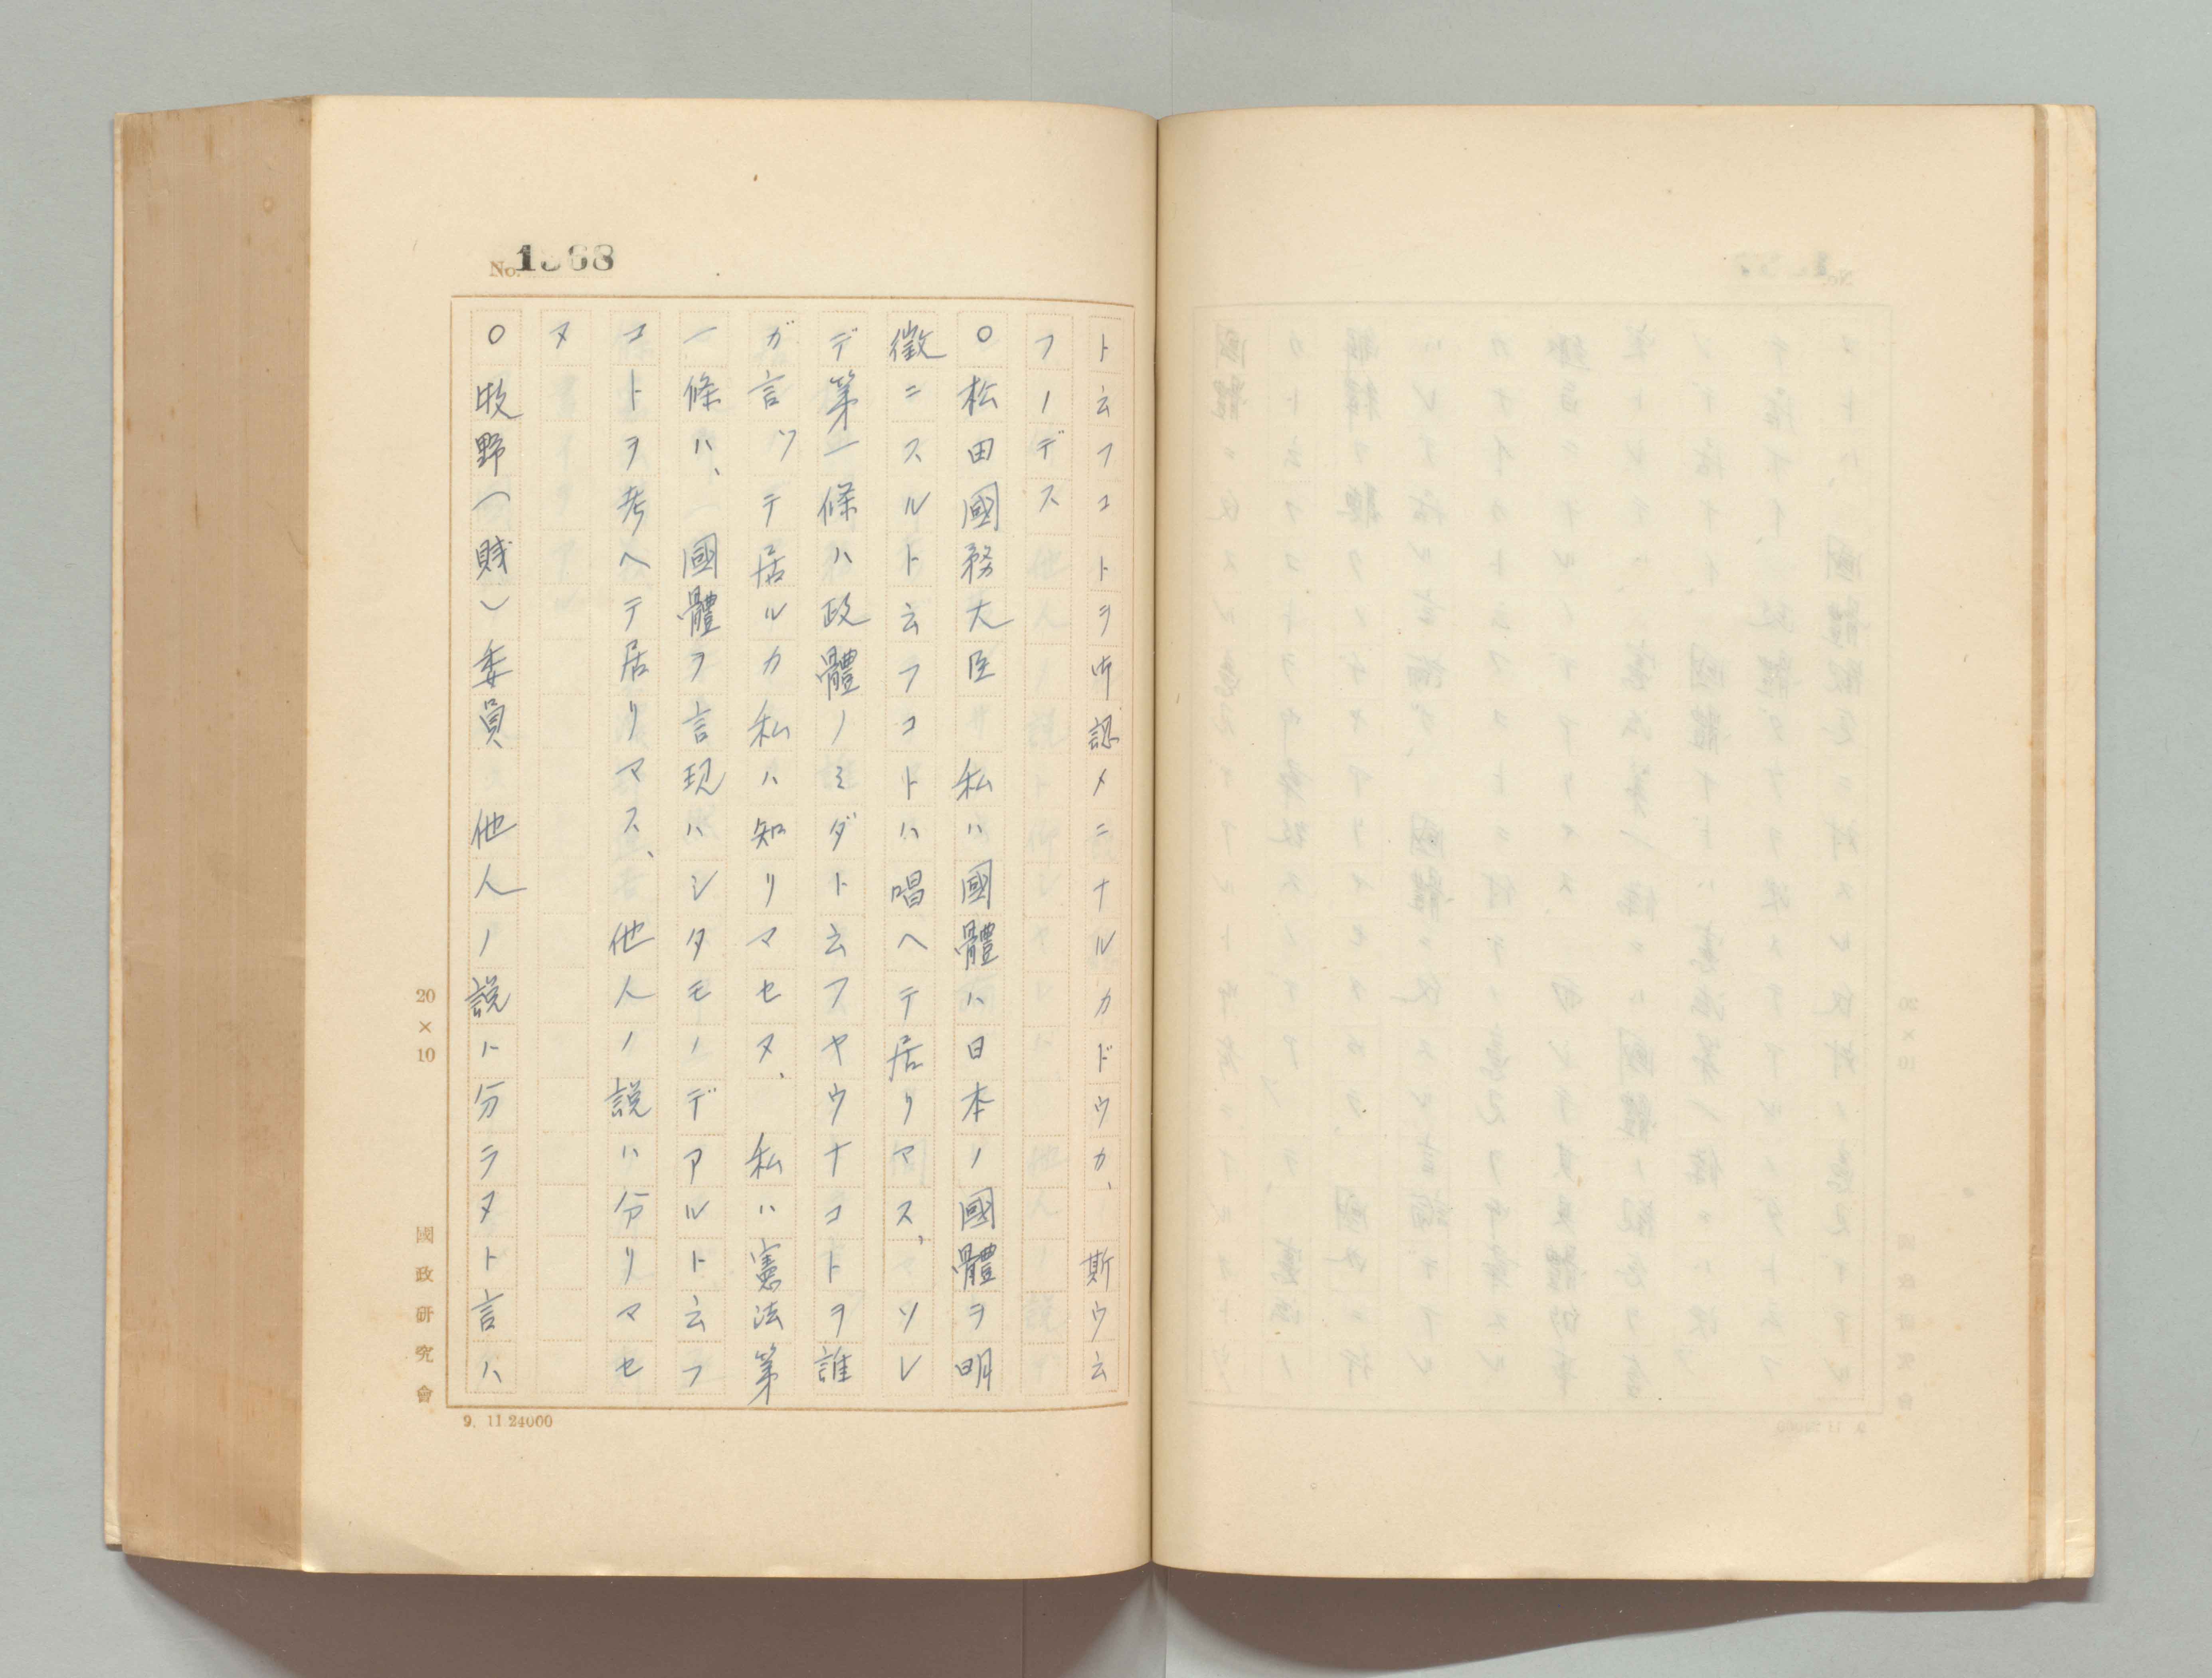 No. 1368
ト云フコトヲ御認メニナルカドウカ、斯ウ云
フノデス
○松田國務大臣 私ハ國體ハ日本ノ國體ヲ明
徴ニスルト云フコトハ唱ヘテ居リマス、ソレ
デ第一條ハ政體ノミダト云フヤウナコトヲ誰
ガ言ツテ居ルカ私ハ知リマセヌ、私ハ憲法第
一條ハ、國體ヲ言現ハシタモノデアルト云フ
コトヲ考ヘテ居リマス、他人ノ説ハ分リマセ
ヌ
○牧野(賤)委員 他人ノ説ハ分ラヌト言ハ
20×10
國政研究會
9. 11 24000